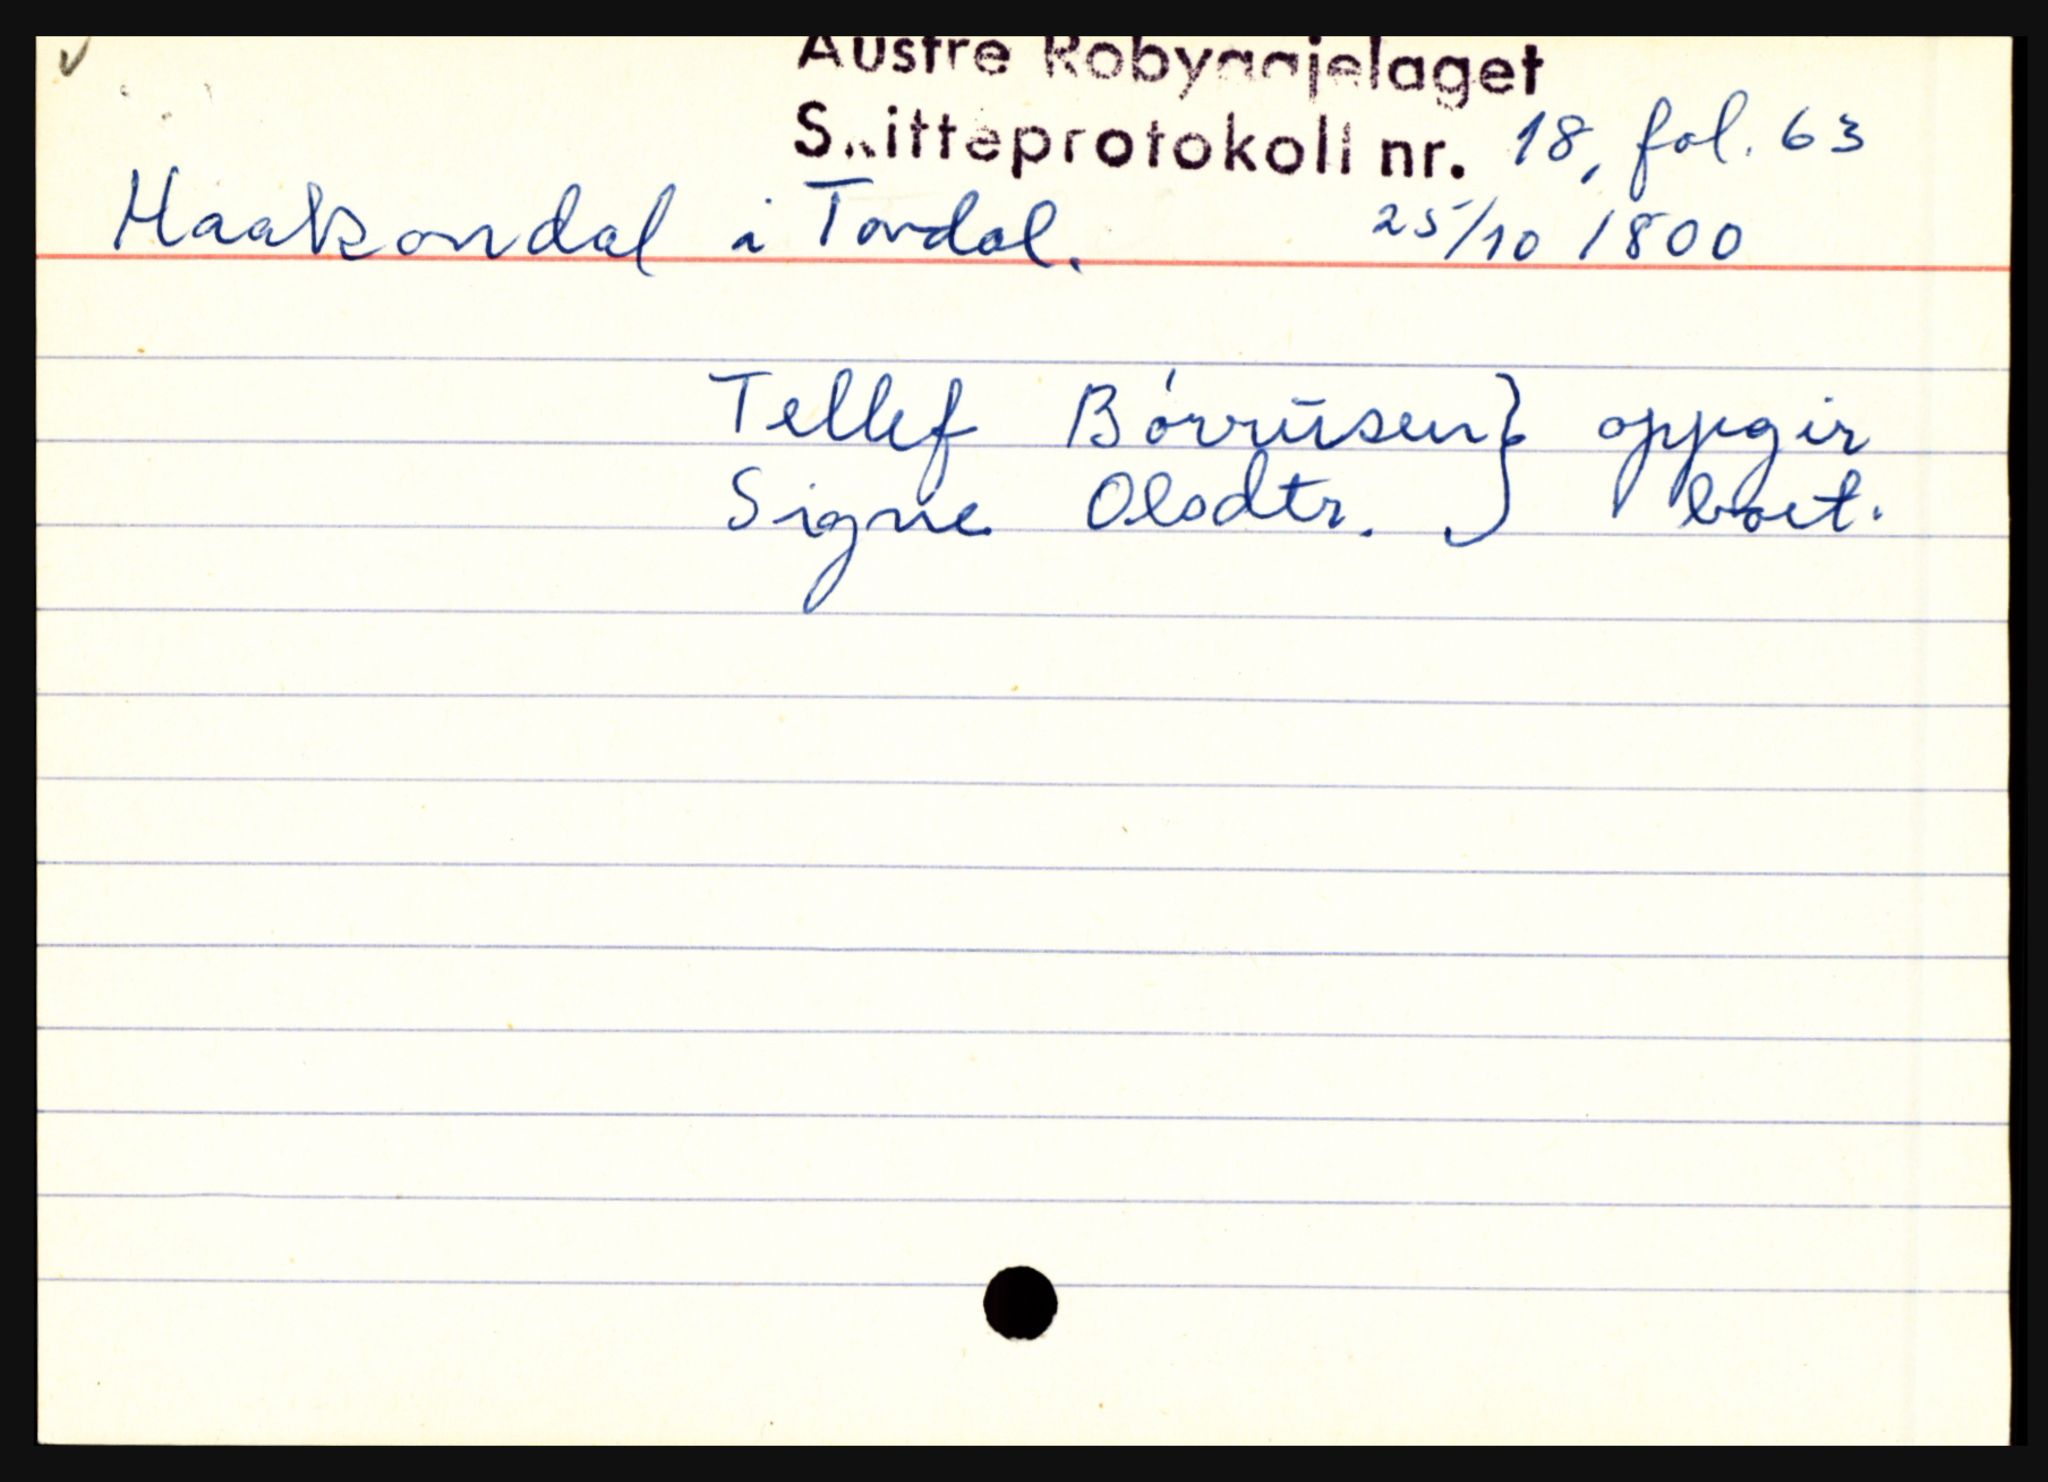 Austre Robyggjelaget
Skifteprotokoll nr. 18, fol. 63
Haakondal i Tovdal. 25/10 1800
Tellef Bórrūsen } oppgir
Signe Olsdtr. } boet.